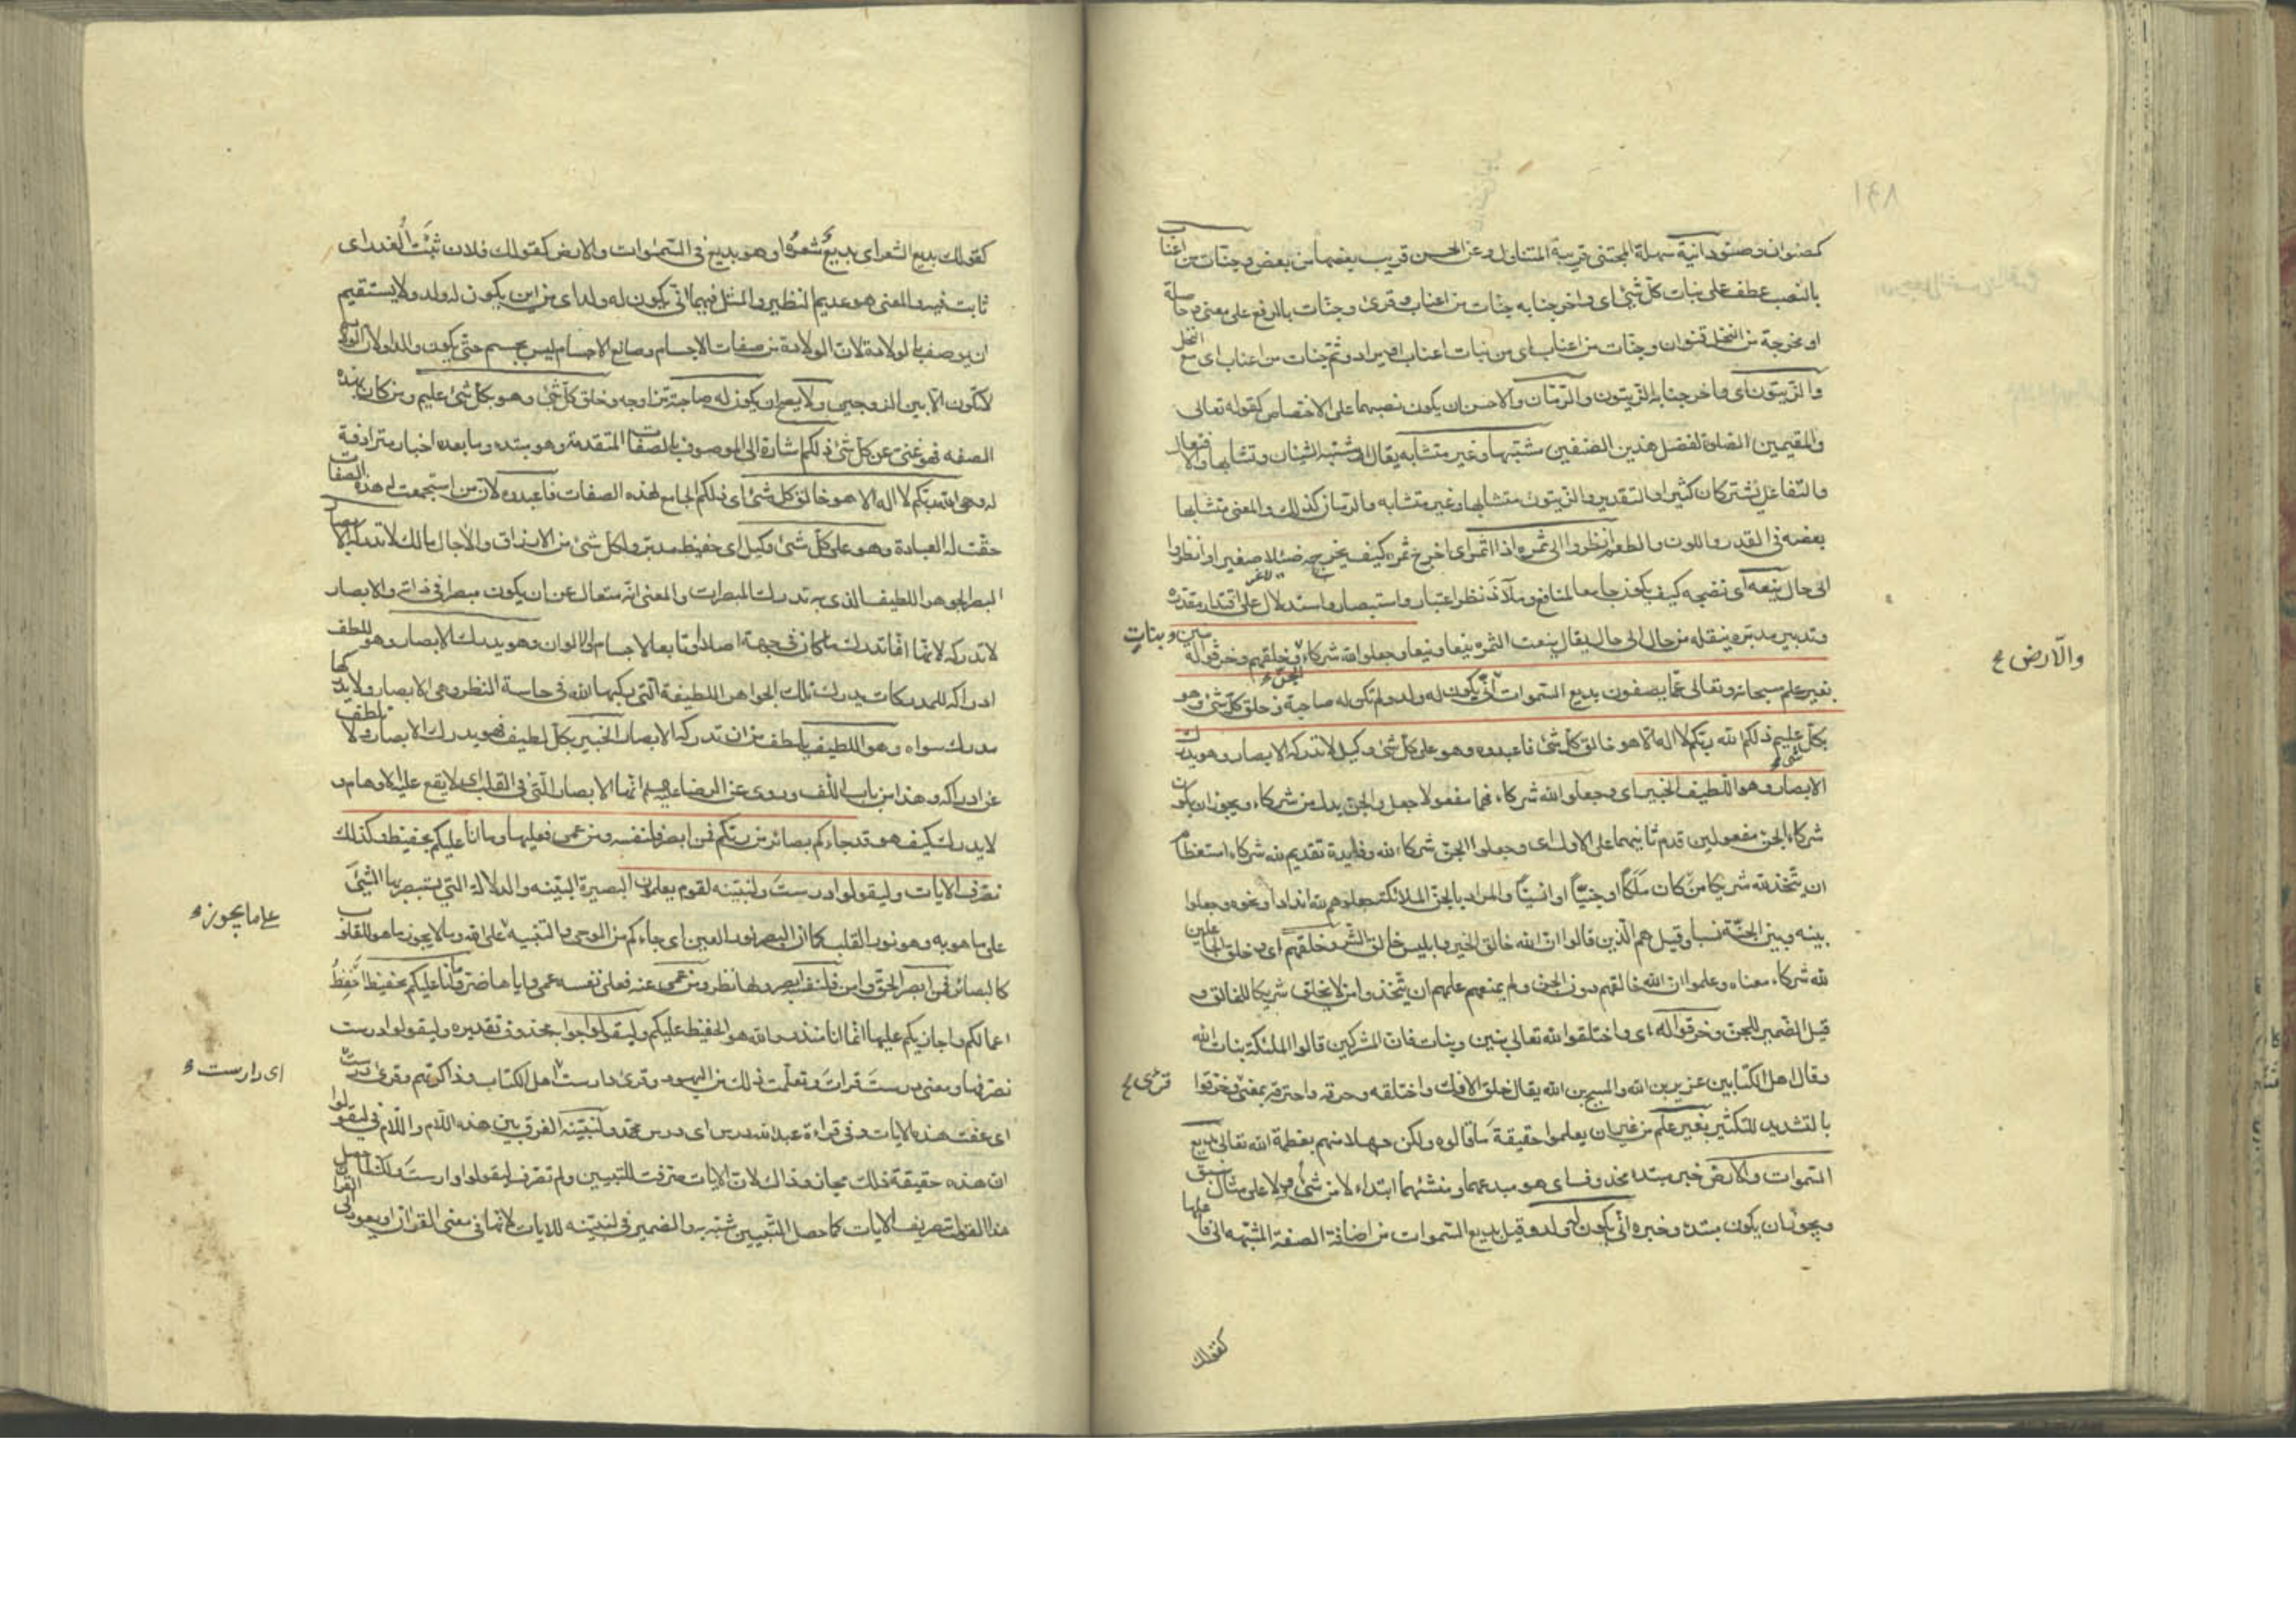 كصنوان وصنو دانية سهلة المجتنى قريبة المتناول وعن الحسن قريب بعضها من بعض وجنات من اعناب
بالنصب عطف على نبات كل شئ اى واخرجنا به جنات من اعناب وقرئ وجنات بالرفع على معنى وحاصلة
او مخرجة من النخل قنوان وجنات من اعناب اى من نبات اعناب او يراد وثم جنات من اعناب اى مع النخل
والزيتون اى واخرجنا به الزيتون والرمان والاحسن ان يكون نصبهما على الاختصاص كقوله تعالى
والمقيمين الصلوة لفضل هذين الصنفين مشتبها وغير متشابه يقال اشتبه الشيئان وتشابها والافتعال
والتفاعل يشتركان كثيرا والتقدير والزيتون متشابها وغير متشابه والرمان كذلك والمعنى متشابها
بعضه فى القدر واللون والطعم انظروا الى ثمره اذا اثمر اى اخرج ثمره كيف يخرجه ضئيلا صغيرا وانظروا
الى حال ينعه اى نضجه كيف يكون جامعا لمنافع وملاذ نظر اعتبار واستبصار واستدلال على اقتدار مقدره
وتدبير مدبره ينقله من حال الى حال يقال ينعت الثمره ينعا وينعا وجعلوا لله شركاء الجن وخلقهم وخرقوا له بنين وبنات
بغير علم سبحانه وتعالى عما يصفون بديع السموات والارض انى يكون له ولد ولم تكن له صاحبة وخلق كل شئ وهو
بكل شئ عليم ذلكم الله ربكم لا اله الا هو خالق كل شئ فاعبدوه وهو على كل شئ وكيل لا تدركه الابصار وهو يدرك
الابصار وهو اللطيف الخبير اى وجعلوا لله شركاء فهما مفعولا جعل والجن بدل من شركاء ويجوز ان يكون
شركاء الجن مفعولين قدم ثانيهما على الاول اى وجعلوا الجن شركاء لله وفايدة تقديم لله شركاء استعظام
ان يتخذ لله شريكا من كان ملكا او جنيا او انسيا والمراد بالجن الملائكة جعلوهم لله اندادا ونحوه وجعلوا
بينه وبين الجنة نسبا وقيل هم الذين قالوا ان الله خالق الخير وابليس خالق الشر وخلقهم اى وخلق الجاعلين
لله شركاء معناه وعلموا ان الله خالقهم دون الجن ولم يمنعهم علمهم ان يتخذوا من لا يخلق شريكا للخالق و
قيل الضمير للجن وخرقوا له اى واختلقوا لله تعالى بنين وبنات فان المشركين قالوا الملئكة بنات الله
وقال اهل الكتابين عزير بن الله والمسيح بن الله يقال خلق الافك واختلقه وخرقه واخترقه بمعنى وقرئ وخرقوا
بالتشديد للتكثير بغير علم من غير ان يعلموا حقيقة ما قالوه ولكن جهلا منهم بعظمة الله تعالى بديع
السموات والارض خبر مبتدء محذوف اى هو مبدعهما ومنشئهما ابتداء لا من شئ ولا على مثال سبق
ويجوز ان يكون مبتدء وخبره انى يكون له ولد وقيل بديع السموات من اضافة الصفة المشبهه الى فاعلها
كقولك
كقولك بديع الشعر اى بديع شعره او هو بديع فى السموات والارض كقولك فلان ثبت الغدر اى
ثابت فيه والمعنى هو عديم النظير والمثل فيهما انى يكون له ولد اى من اين يكون له ولد ولا يستقيم
ان يوصف بالولادة لان الولادة من صفات الاجسام وصانع الاجسام ليس بجسم حتى يكون والدا ولان الولادة
لا تكون الا بين الزوجين ولا يصح ان يكون له صاحبة تزاوجه وخلق كل شئ وهو بكل شئ عليم ومن كان بهذه
الصفه فهو غنى عن كل شئ ذلكم اشارة الى الموصوف بالصفات المتقدمة وهو مبتدء وما بعده اخبار مترادفة
له وهى الله ربكم لا اله الا هو خالق كل شئ اى ذلكم الجامع لهذه الصفات فاعبدوه لان من استجمعت له هذه الصفات
حقت له العبادة وهو على كل شئ وكيل اى حفيظ مدبر ولكل شئ من الارزاق والآجال مالك لا تدركه الابصار
البصر الجوهر اللطيف الذى به تدرك المبصرات والمعنى انه متعال عن ان يكون مبصرا فى ذاته والابصار
لا تدركه لانها انما تدرك ما كان فى جهة اصلا او تابعا كالاجسام والالوان وهو يدرك الابصار وهو للطف
ادراكه للمدركات يدرك تلك الجواهر اللطيفة التى ركبها الله فى حاسة النظر وهى الابصار ولا يدركها
مدرك سواه وهو اللطيف يلطف من ان تدركه الابصار الخبير بكل لطيف فهو يدرك الابصار ولا تلطف
عن ادراكه وهذا من باب اللف وروى عن الرضا عليه السلم انها الابصار التى فى القلب اى لا يقع عليه الاوهام و
لا يدرك كيف هو قد جاءكم بصائر من ربكم فمن ابصر فلنفسه ومن عمى فعليها وما انا عليكم بحفيظ وكذلك
نصرف الايات وليقولوا درست ولنبينه لقوم يعلمون البصيرة البينه والدلالة التى يستبصر بها الشئ
على ما هو به وهو نور القلب كما ان البصر نور العين اى جاءكم من الوحى والتنبيه على ما يجوز على الله وما لا يجوز ما هو للقلوب
كالبصائر فمن ابصر الحق وامن فلنفسه ابصر ولها نظر ومن عمى عنه فعلى نفسه عمى واياها ضر وما انا عليكم بحفيظ احفظ
اعمالكم واجازيكم عليها انما انا منذر والله هو الحفيظ عليكم وليقولوا جوابه محذوف تقديره وليقولوا درست
نصرفها ومعنى درست قرأت وتعلمت ذلك من اليهود وقرئ دارست اى دارست اهل الكتاب وذاكرتهم وقرئ درست
اى عفت هذه الايات وفى قراءة عبدالله درس اى درس محمد ولنبينه الفرق بين هذه اللام واللام فى ليقولوا
ان هذه حقيقة وتلك مجاز وذاك لان الايات صرفت للتبيين ولم تصرف ليقولوا دارست ولكنه لما حصل
هذا القول بتصريف الايات كما حصل التبيين شبه به والضمير فى لنبينه للايات لانها فى معنى القران او يعود الى القران